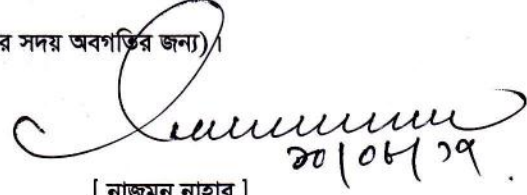 র সদয় অবগতির জন্য)।
২০/০৮/১৭
[ নাজমুন নাহার ]